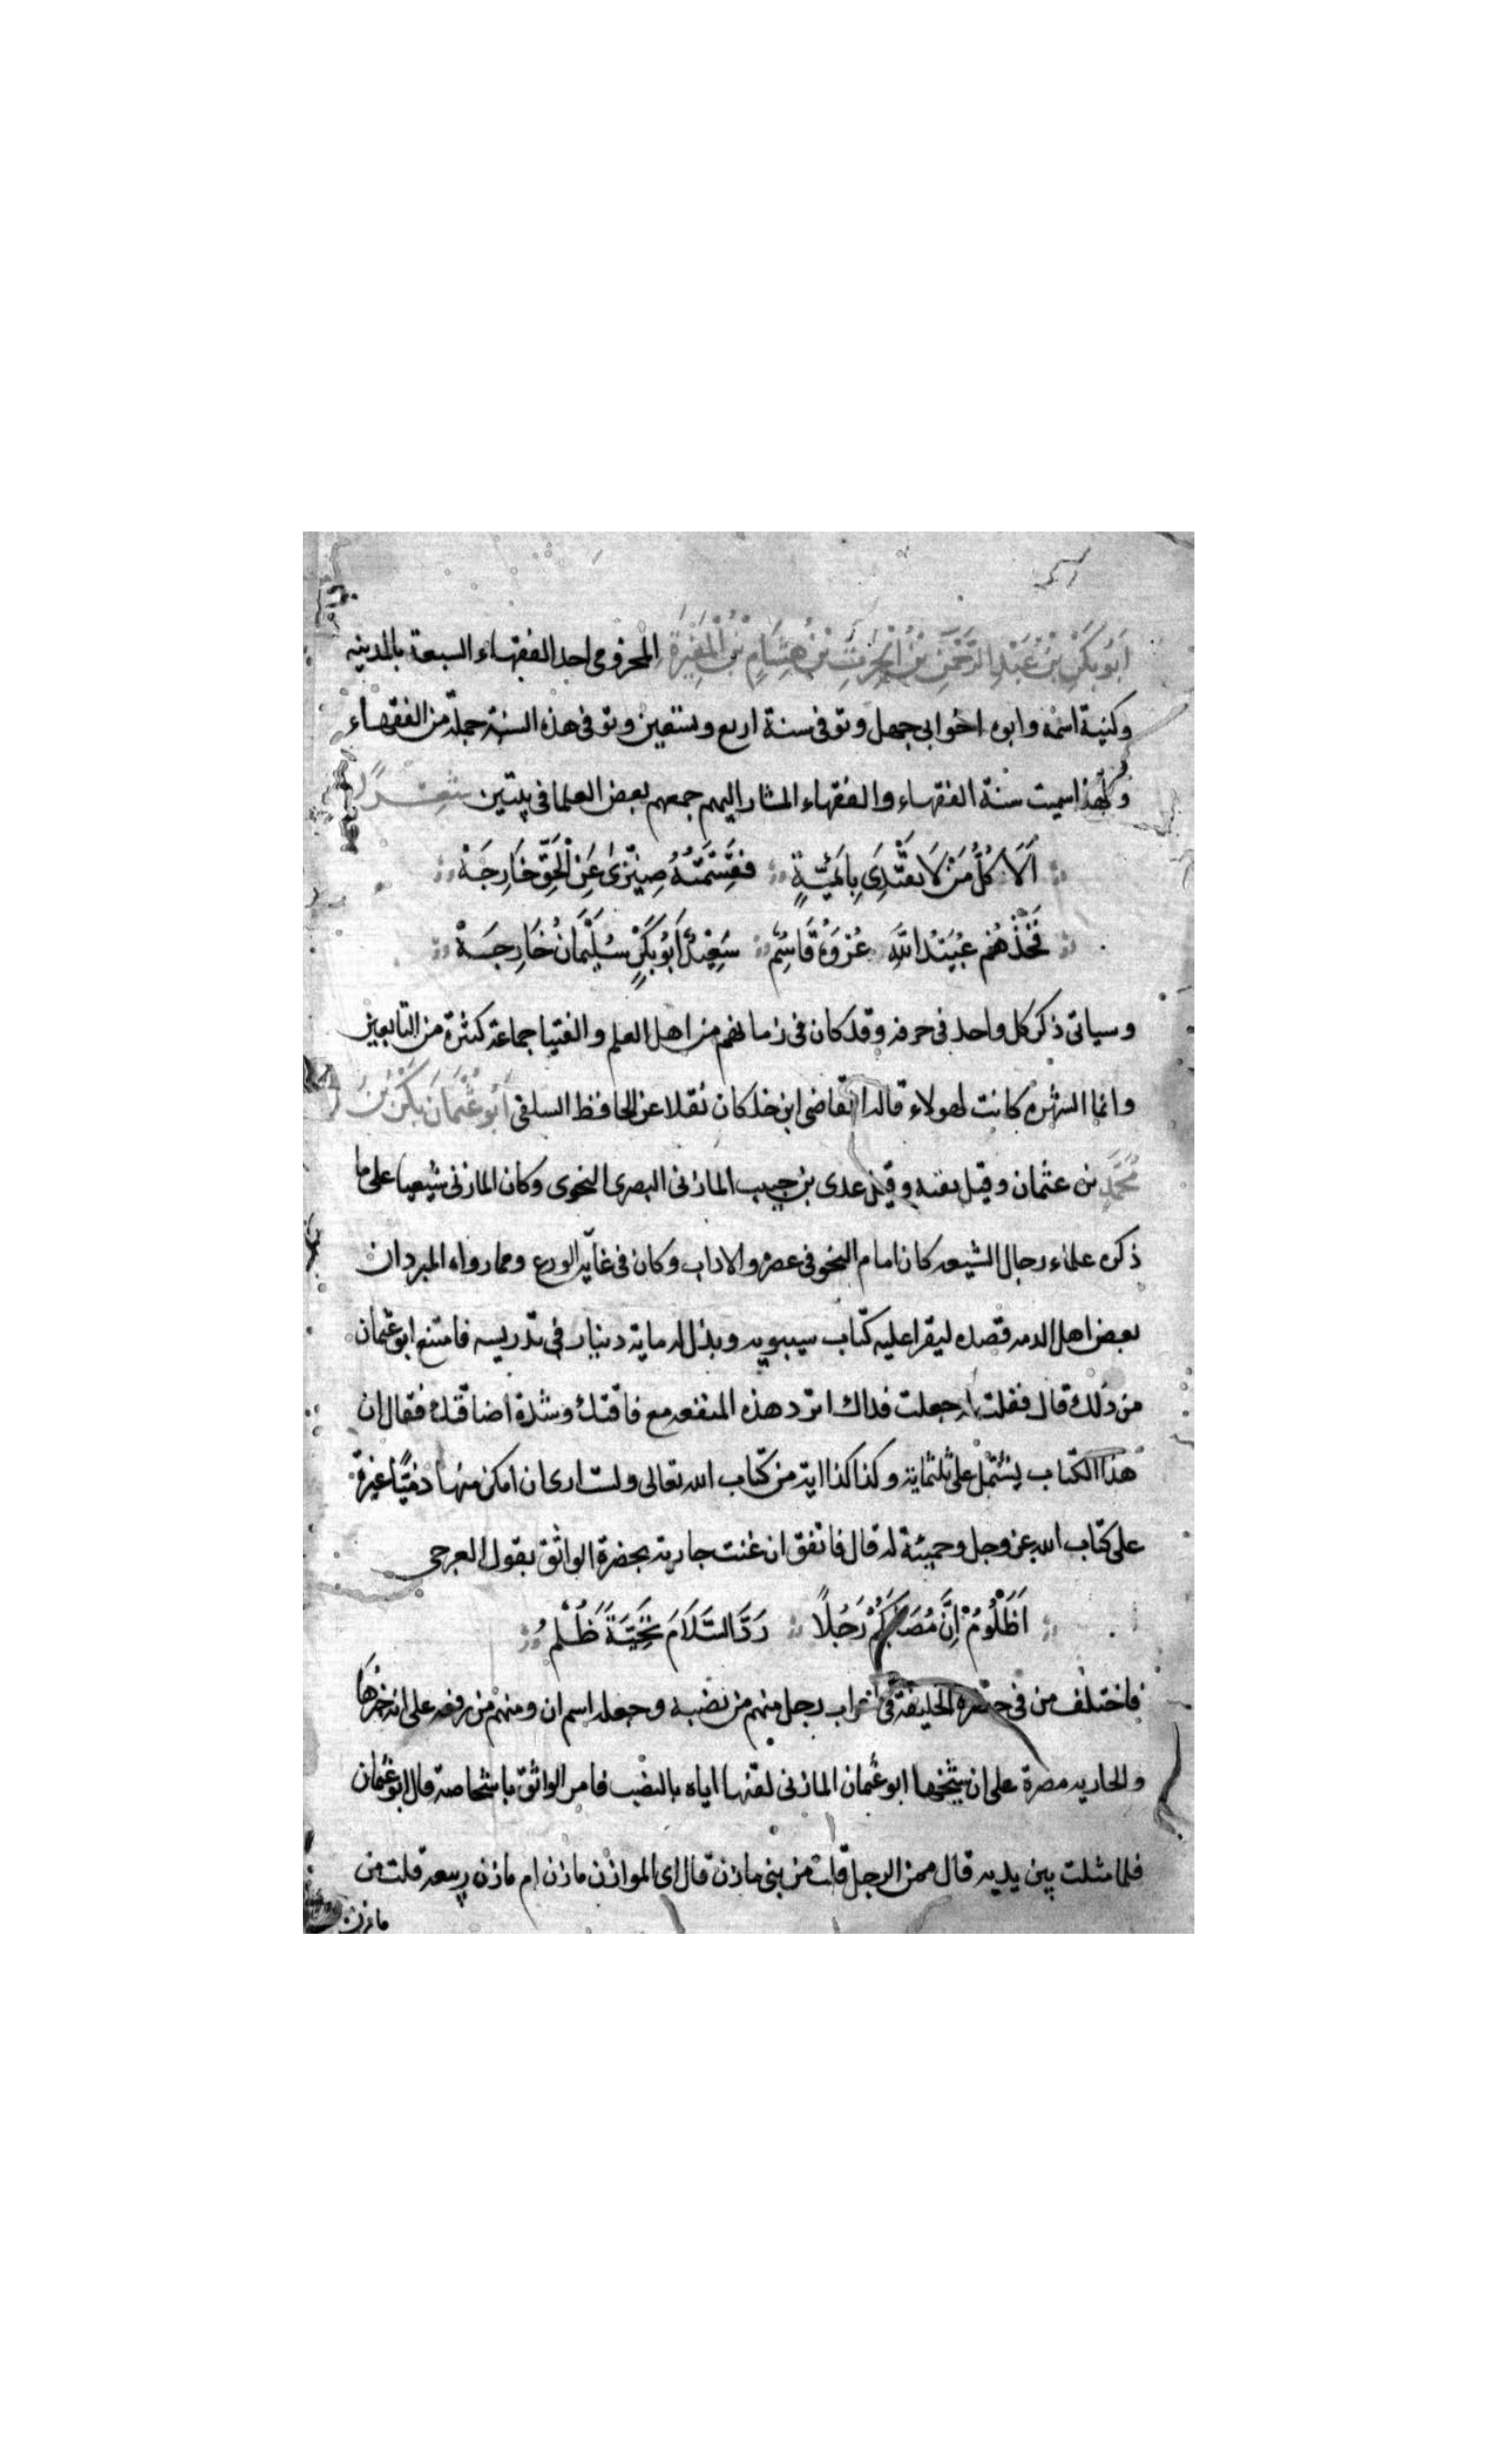 اَبُو بَكَرْ بْنِ عَبْدِ الرَّحْمٰنِ بْنُ الْحٰرِثِ بْنُ هِشَامٍ بْنِ الْمُغِيْرَةِ المخزومى احد الفقهاء السبعة بالمدينه
وكنيته اسمه وابوه اخو ابى جهل وتوفى سنة اربع وتسعين وتوفى هذه السنة جملة من الفقهاء
ولهذا سميت سنة الفقهاء والفقهاء المشار اليهم جمعهم بعض العلما فى بيتين شعـــرًا
اَلَا كُلُّ مَنْ لَا يَقْتَدِى بِاَئِمَّةٍ فَقِسْمَتُهُ ضِيْزٰى عَنِ الْحَقِّ خَارِجَهْ
فَخُذْهُمْ عُبَيْدُ اللّٰهِ عُرْوَةُ قَاسِمٌ سَعِيْدٌ اَبُوْ بَكَرٍ سُلَيْمَانُ خَارِجَهْ
وسياتى ذكر كل واحد فى حرفه وقد كان فى زمانهم من اهل العلم والفتيا جماعة كثرة من التابعين
وانما الشهرة كانت لهولاء قاله القاضى ابن خلكان نقلا عن الحافظ السلفى اَبُو عُثْمَانَ بَكْرُ بْنُ
مُحَمَّدِ بن عثمان وقيل بقيه وقيل عدى بن حبيب المازنى البصرى النحوى وكان المازنى شيعيا على ما
ذكره علماء رجال الشيعه كان امام النحو فى عصره والاداب وكان فى غاية الورع ومما رواه المبرد ان
بعض اهل الذمه قصده ليقرا عليه كتاب سيبويه وبذل له ماية دينار فى تدريسه فامتنع ابو عثمان
من ذلك قال فقلت له جعلت فداك اترد هذه المنفعه مع فاقتك وشدة اضاقتك فقال ان
هذا الكتاب يشتمل على ثلثماية وكذا كذا اية من كتاب الله تعالى ولست ارى ان امكن منها ذميًّا غيرة
على كتاب الله عز وجل وحمية له قال فاتفق ان غنت جارية بحضرة الواثق بقول العرجى
اَظَلُوْمُ اِنَّ مُصَابَكُمْ رَجُلًا رَدَّ السَّلَامَ تَحِيَّةً ظُـــلْمُ
فاختلف من فى حضرة الخليفة فى اعراب رجل منهم من نصبه وجعله اسم ان ومنهم من رفعه على انه خبرها
والجاريه مصرة على ان شيخها ابو عثمان المازنى لقنها اياه بالنصب فامر الواثق باشخاصه قال ابو عثمان
فلما مثلت بين يديه قال ممن الرجل قلت من بنى مازن قال اى الموازن مازن ام مازن ربيعه قلت من
مازن